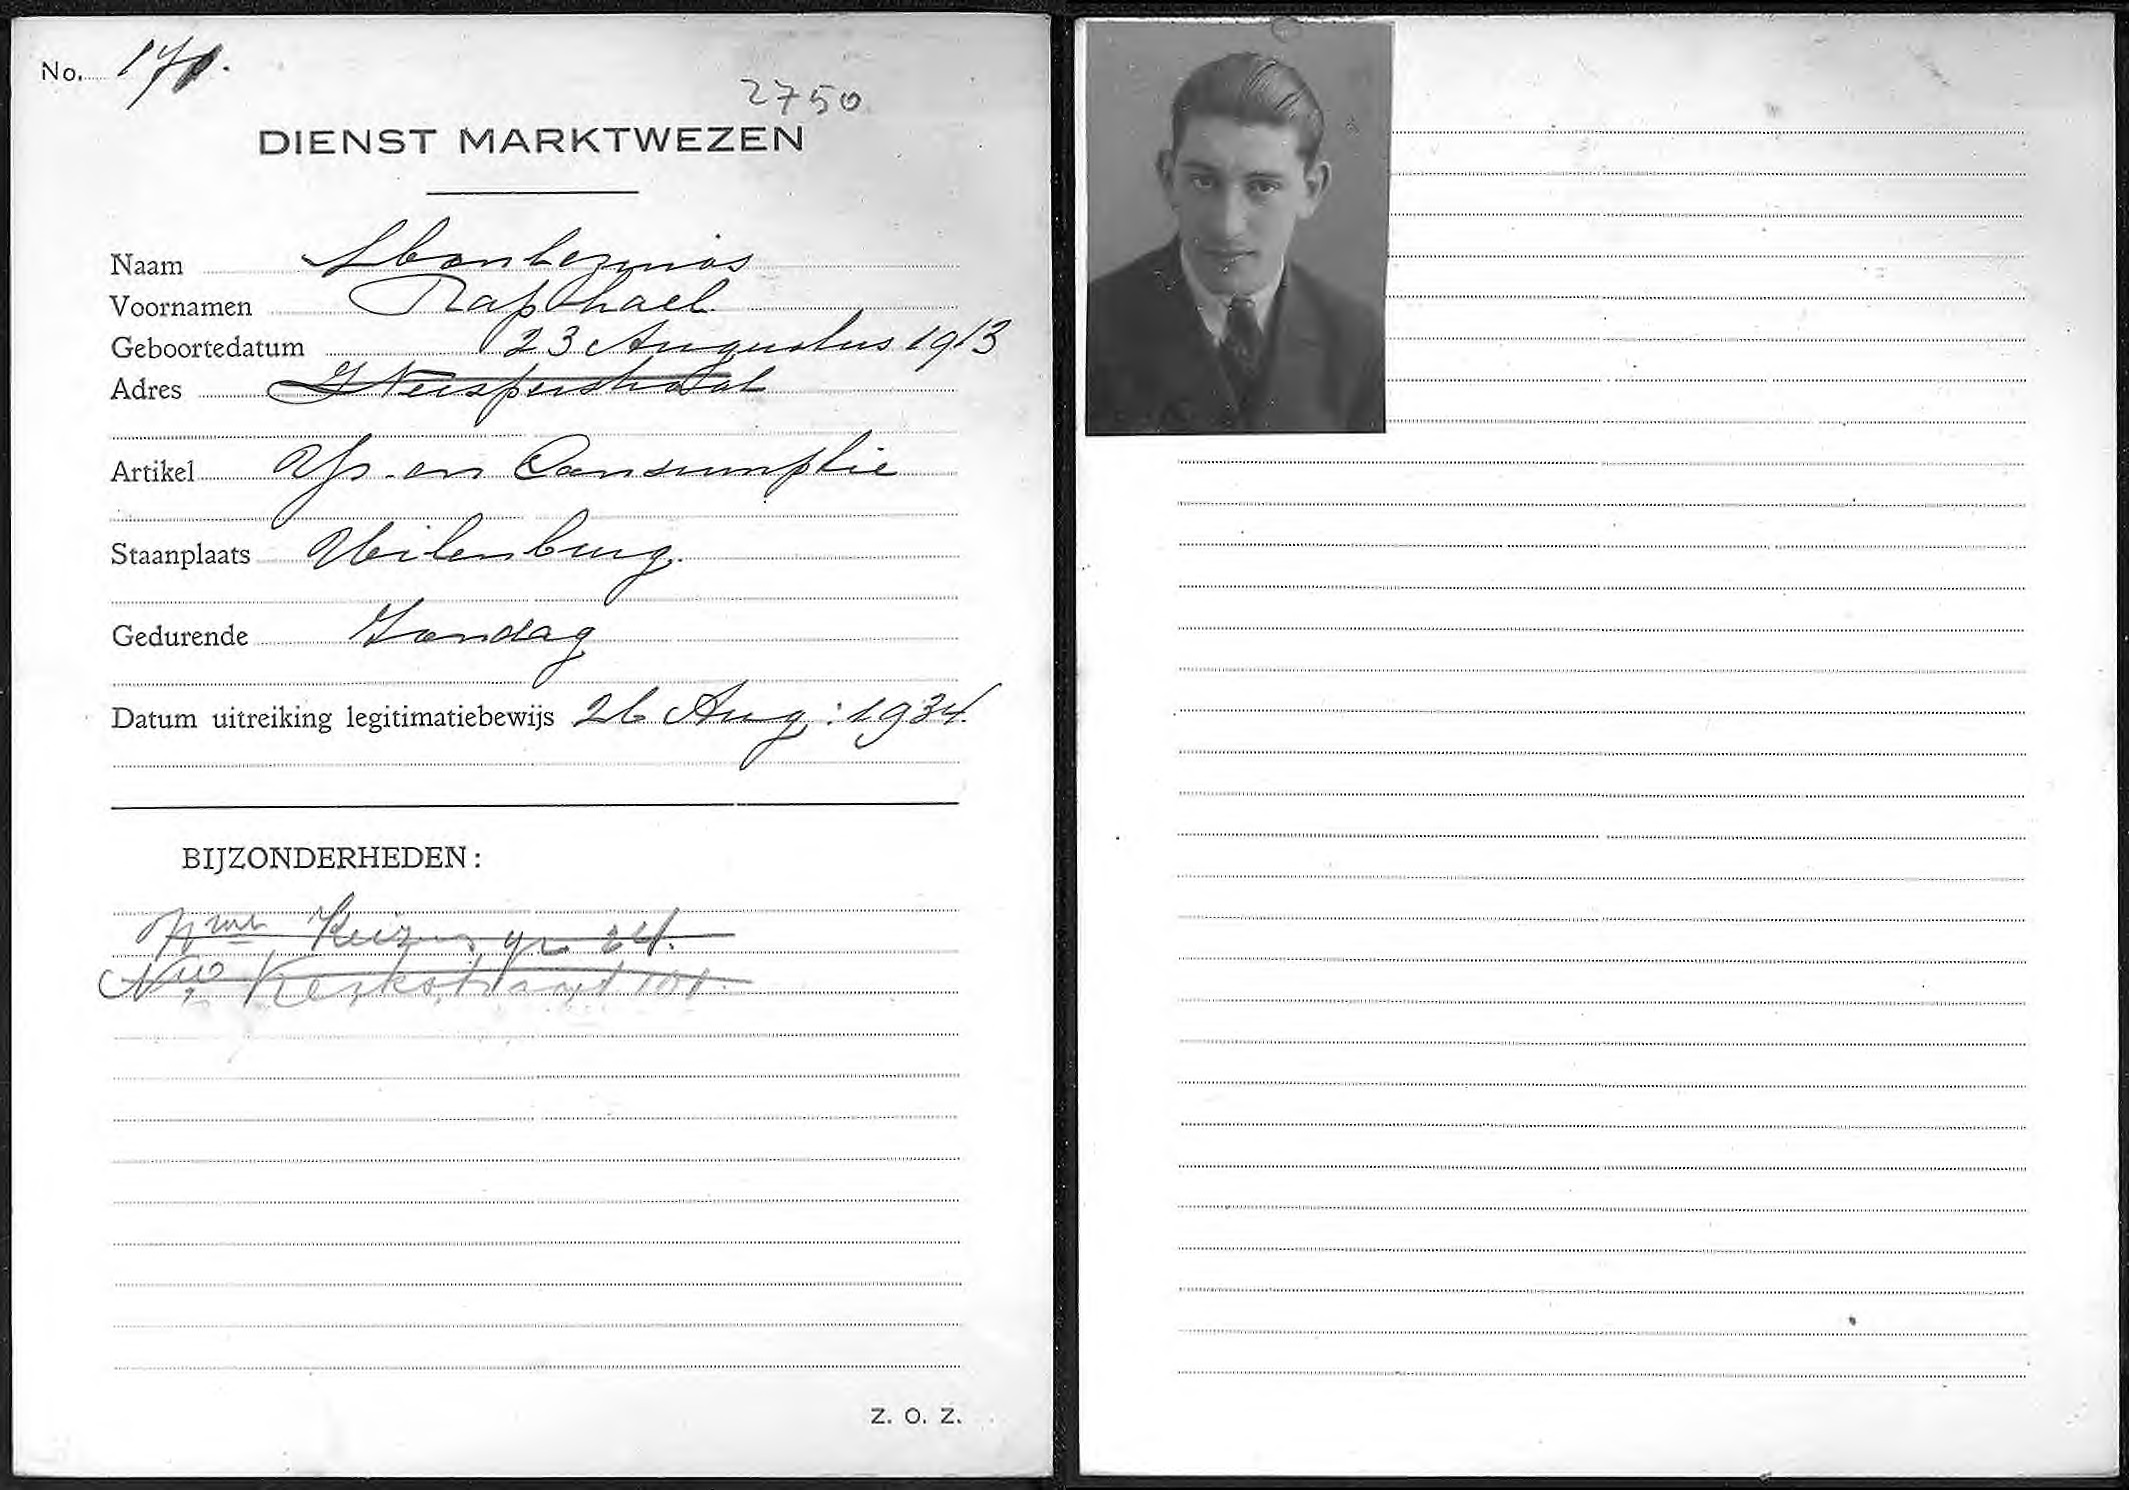 No. 171.
2750
DIENST MARKTWEZEN
Naam Montezinos
Voornamen Raphael
Geboortedatum 23 Augustus 1913
Adres Weesperstraat
Artikel IJs en Consumptie
Staanplaats Uilenburg.
Gedurende Zondag
Datum uitreiking legitimatiebewijs 26 Aug: 1934.
BIJZONDERHEDEN:
Nwe Keizersgr
Nwe Kerkstraat 101.
Z. O. Z.